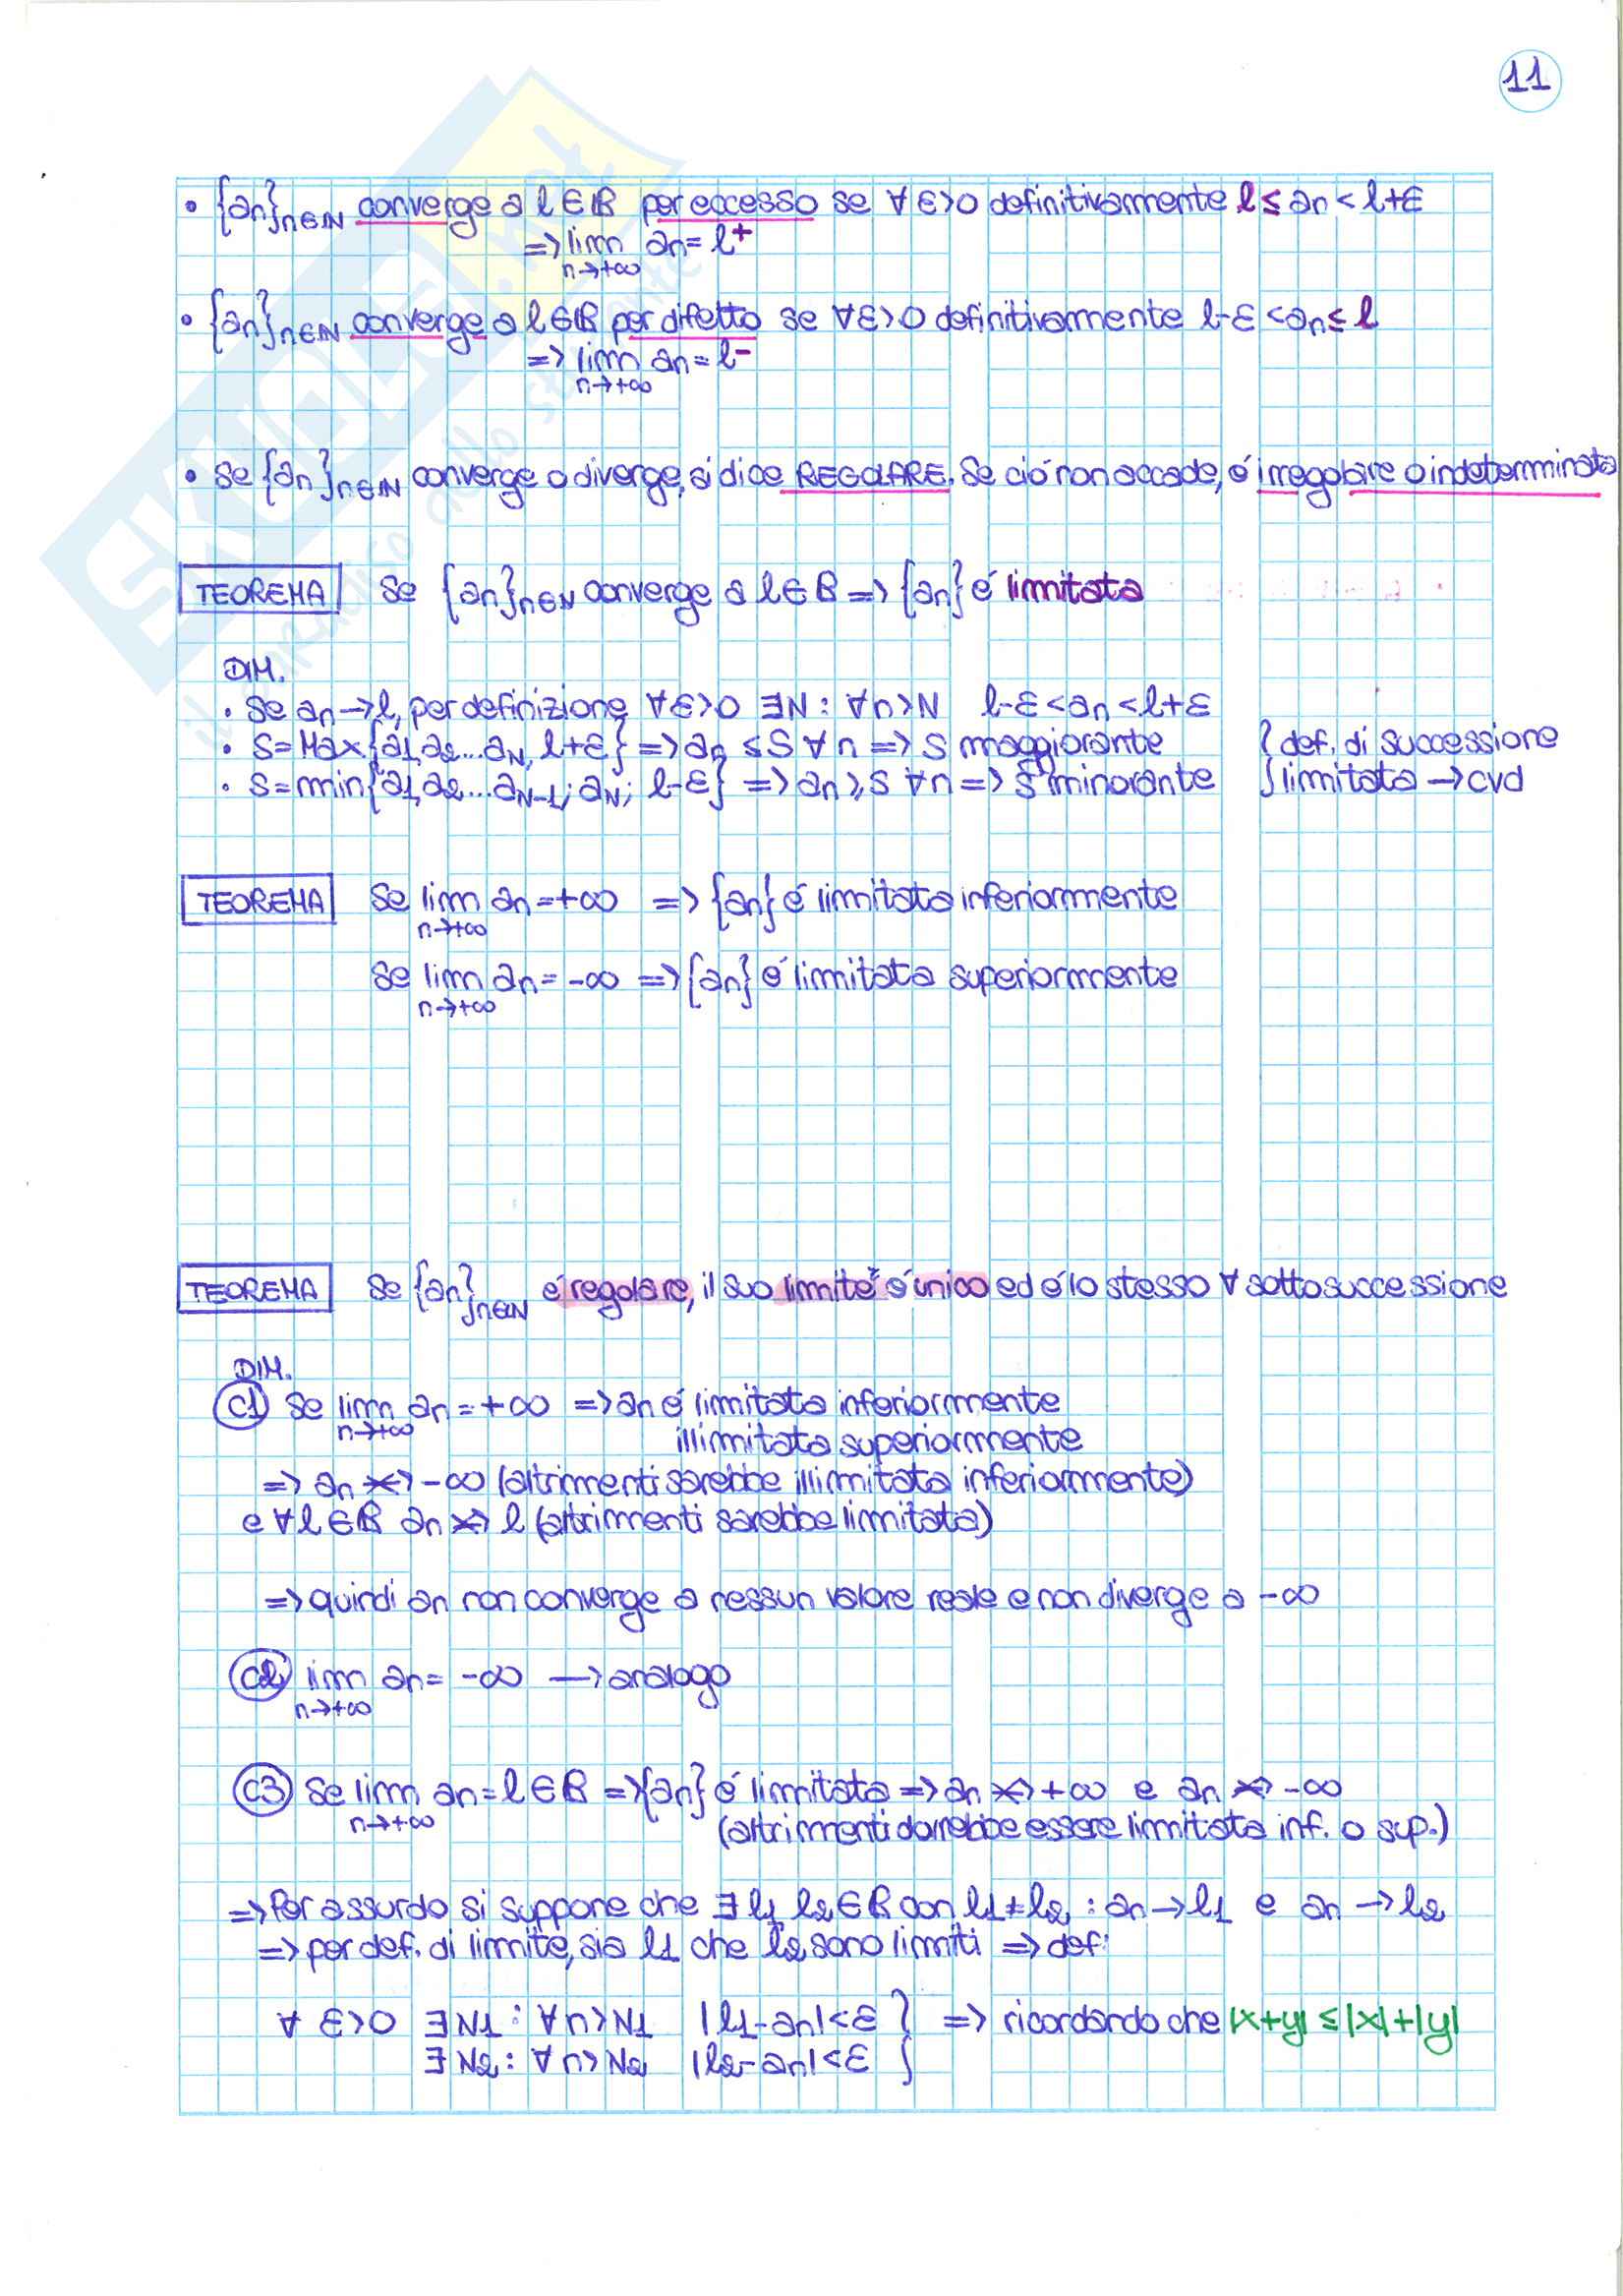 11
• {an}n∈ℕ converge a l∈ℝ per eccesso se ∀ε>0 definitivamente l≤an<l+ε
=> lim an = l⁺
n→+∞
• {an}n∈ℕ converge a l∈ℝ per difetto se ∀ε>0 definitivamente l-ε<an≤l
=> lim an = l⁻
n→+∞
• Se {an}n∈ℕ converge o diverge, si dice REGOLARE. Se ció non accade, é irregolare o indeterminata
TEOREMA Se {an}n∈ℕ converge a l∈ℝ => {an} é limitata
DIM.
• Se an→l, per definizione ∀ε>0 ∃N : ∀n>N l-ε<an<l+ε
• S=Max{a1,a2...aN, l+ε} => an ≤S ∀n => S maggiorante } def. di successione
• s=min{a1,a2...aN-1; aN; l-ε} => an≥s ∀n => s minorante } limitata → cvd
TEOREMA Se lim an=+∞ => {an} é limitata inferiormente
n→+∞
Se lim an=-∞ => {an} é limitata superiormente
n→+∞
TEOREMA Se {an}n∈ℕ é regolare, il suo limite é unico ed é lo stesso ∀ sottosuccessione
DIM.
C1 Se lim an=+∞ => an é limitata inferiormente
n→+∞
illimitata superiormente
=> an ↛ -∞ (altrimenti sarebbe illimitata inferiormente)
e ∀l∈ℝ an ↛ l (altrimenti sarebbe limitata)
=> quindi an non converge a nessun valore reale e non diverge a -∞
C2 lim an= -∞ → analogo
n→+∞
C3 Se lim an=l∈ℝ => {an} é limitata => an ↛ +∞ e an ↛ -∞
n→+∞
(altrimenti dovrebbe essere limitata inf. o sup.)
=> Per assurdo si suppone che ∃ l1, l2∈ℝ con l1≠l2 : an→l1 e an→l2
=> per def. di limite, sia l1 che l2 sono limiti => def:
∀ ε>0 ∃N1 : ∀n>N1 |l1-an|<ε } => ricordando che |x+y| ≤ |x|+|y|
∃N2 : ∀n>N2 |l2-an|<ε }